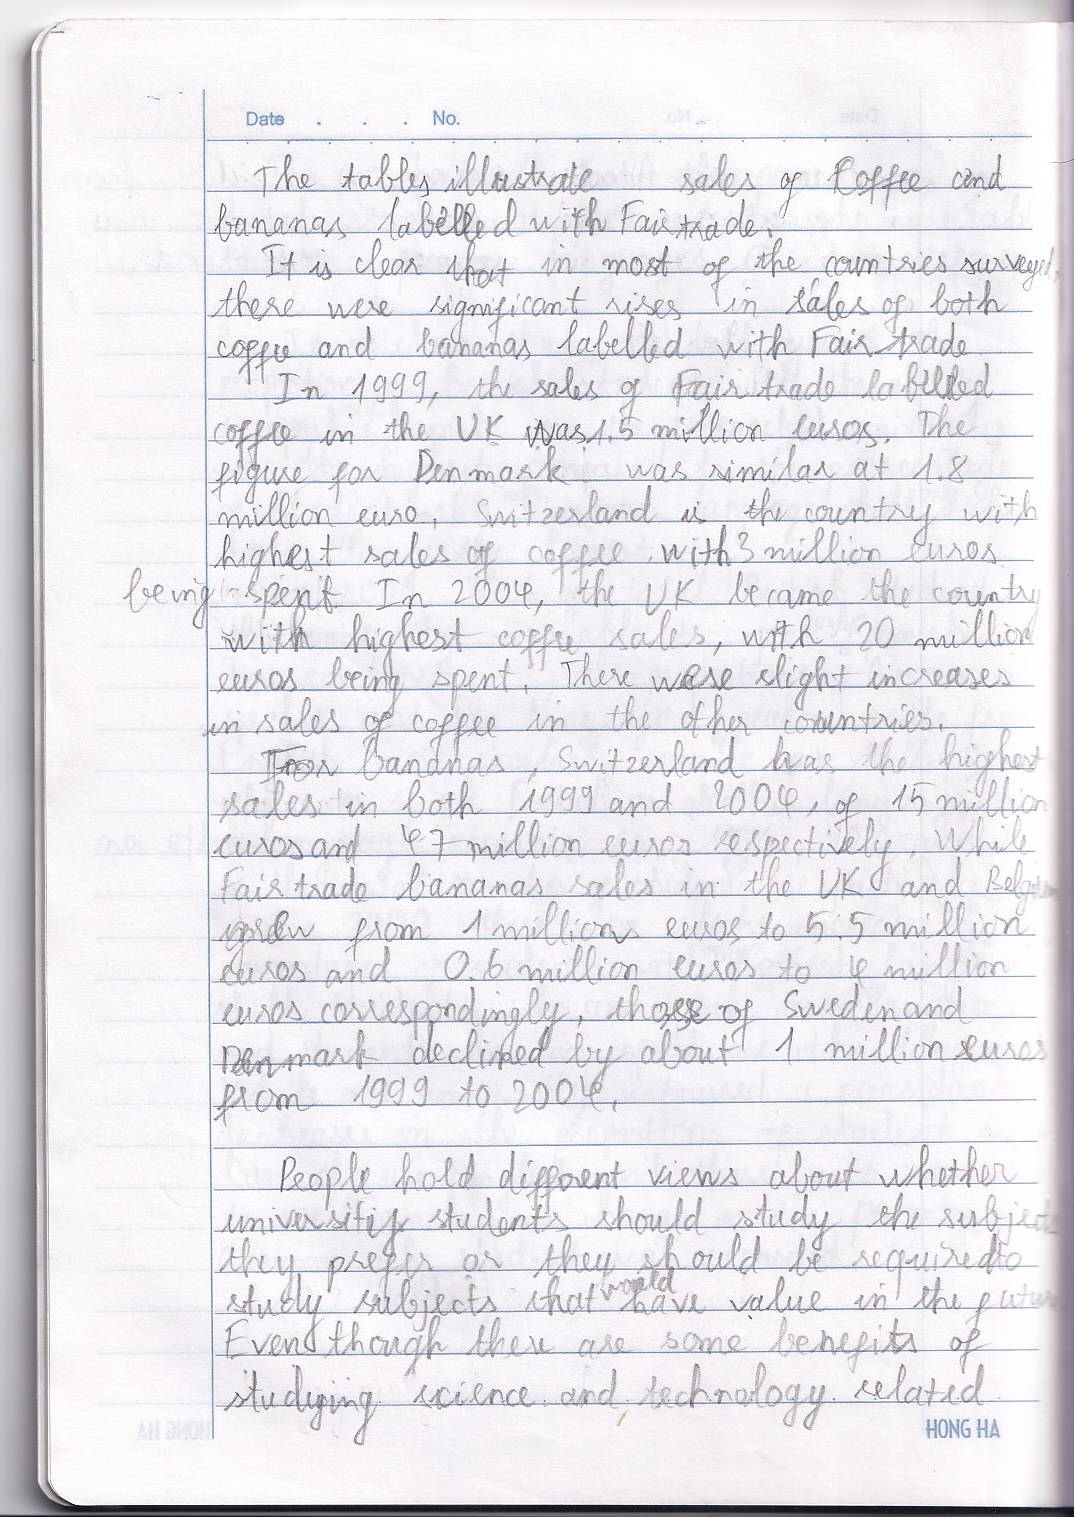 Date . . . No.
The tables illustrate sales of Coffee and
bananas labelled with Fairtrade.
It is clear that in most of the countries surveyed,
there were significant rises in sales of both
coffee and bananas labelled with Fairtrade
In 1999, the sales of Fairtrade labelled
coffee in the UK was 1.5 million euros. The
figure for Denmark was similar at 1.8
million euro. Switzerland is the country with
highest sales of coffee with 3 million euros
being spent. In 2004, the UK became the country
with highest coffee sales, with 20 million
euros being spent. There were slight increases
in sales of coffee in the other countries.
For bananas, Switzerland has the highest
sales in both 1999 and 2004, of 15 million
euros and 47 million euros respectively. While
Fairtrade bananas sales in the UK and Belgium
grew from 1 millions euros to 5.5 million
euros and 0.6 million euros to 4 million
euros correspondingly, those of Sweden and
Denmark declined by about 1 million euros
from 1999 to 2004.
People hold different views about whether
university students should study the subjects
they prefer or they should be required to
study subjects that would have value in the future
Even though there are some benefits of
studying science and technology related
HONG HA